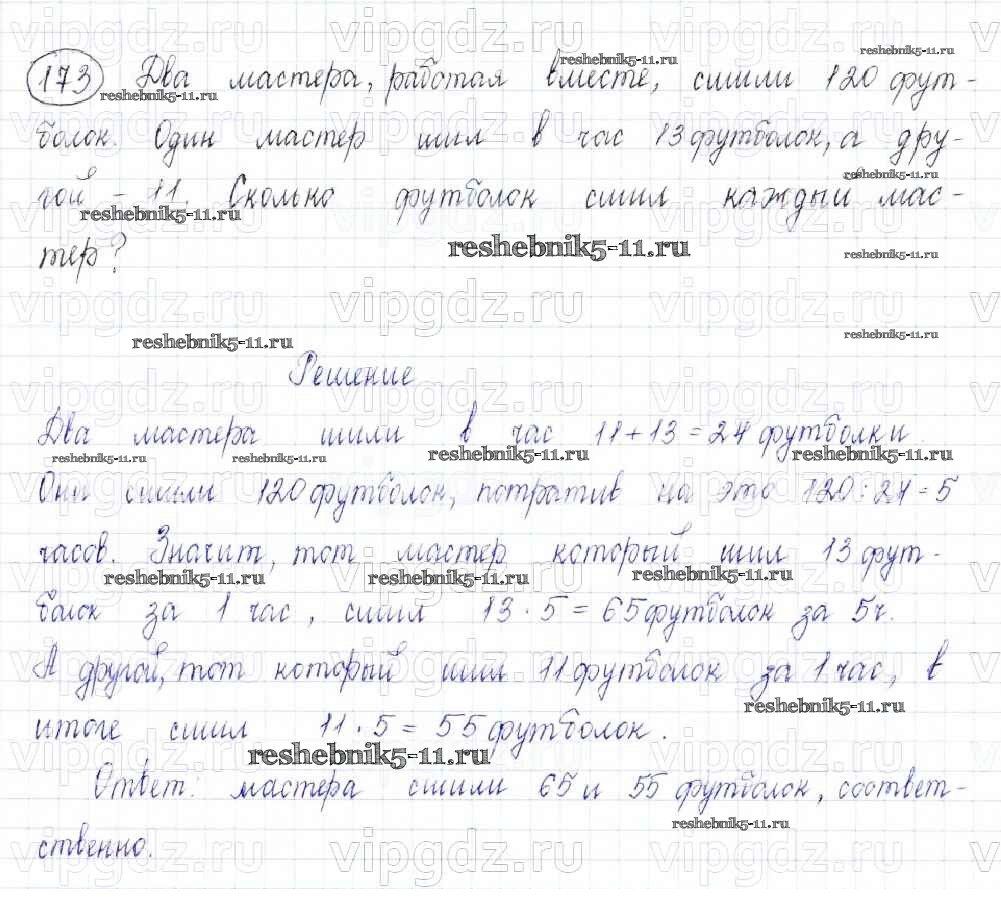 173 Два мастера, работая вместе, сшили 120 фут-
болок. Один мастер шил в час 13 футболок, а дру-
гой - 11. Сколько футболок сшил каждый мас-
тер?
Решение
Два мастера шили в час 11 + 13 = 24 футболки
Они сшили 120 футболок, потратив на это 120 : 24 = 5
часов. Значит, тот мастер который шил 13 фут-
болок за 1 час, сшил 13 · 5 = 65 футболок за 5 ч.
А другой, тот который шил 11 футболок за 1 час, в
итоге сшил 11 · 5 = 55 футболок.
Ответ: мастера сшили 65 и 55 футболок, соответ-
ственно.
reshebnik5-11.ru
vipgdz.ru